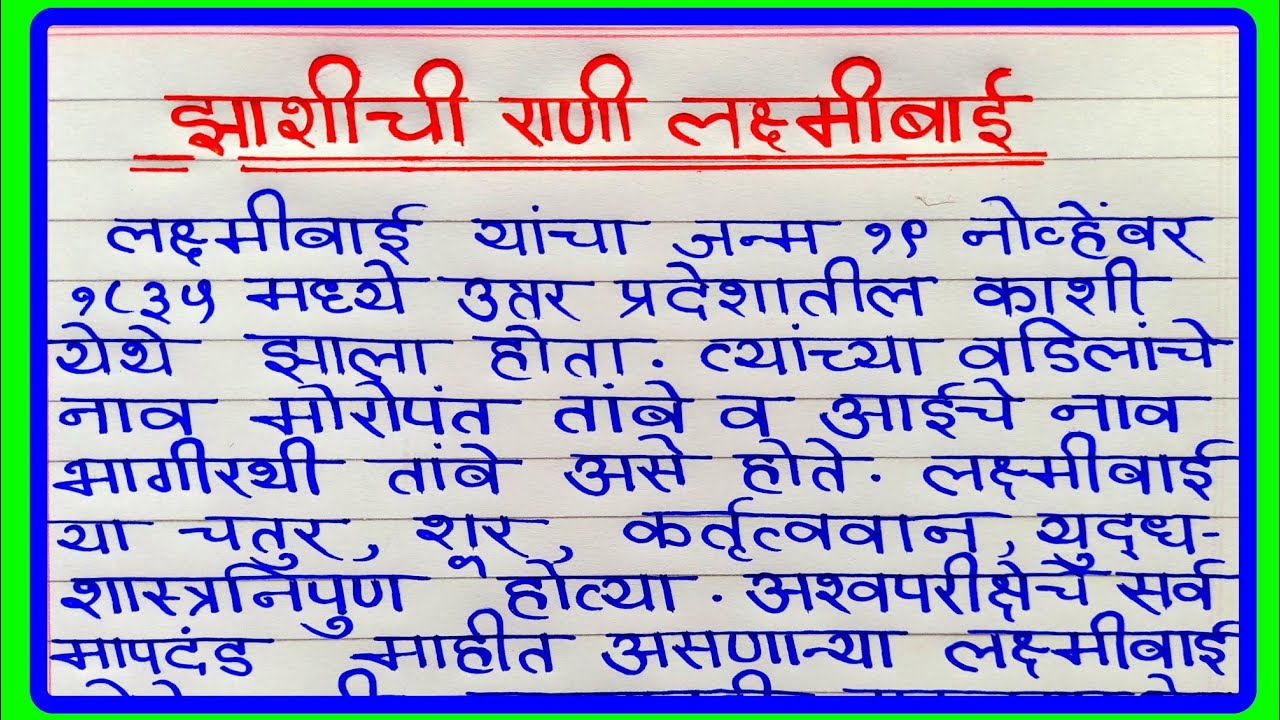 झाशीची राणी लक्ष्मीबाई
लक्ष्मीबाई यांचा जन्म १९ नोव्हेंबर
१८३५ मध्ये उत्तर प्रदेशातील काशी
येथे झाला होता. त्यांच्या वडिलांचे
नाव मोरोपंत तांबे व आईचे नाव
भागीरथी तांबे असे होते. लक्ष्मीबाई
या चतुर, शूर, कर्तृत्ववान, युद्ध-
शास्त्रनिपुण होत्या. अश्वपरीक्षेचे सर्व
मापदंड माहीत असणाऱ्या लक्ष्मीबाई